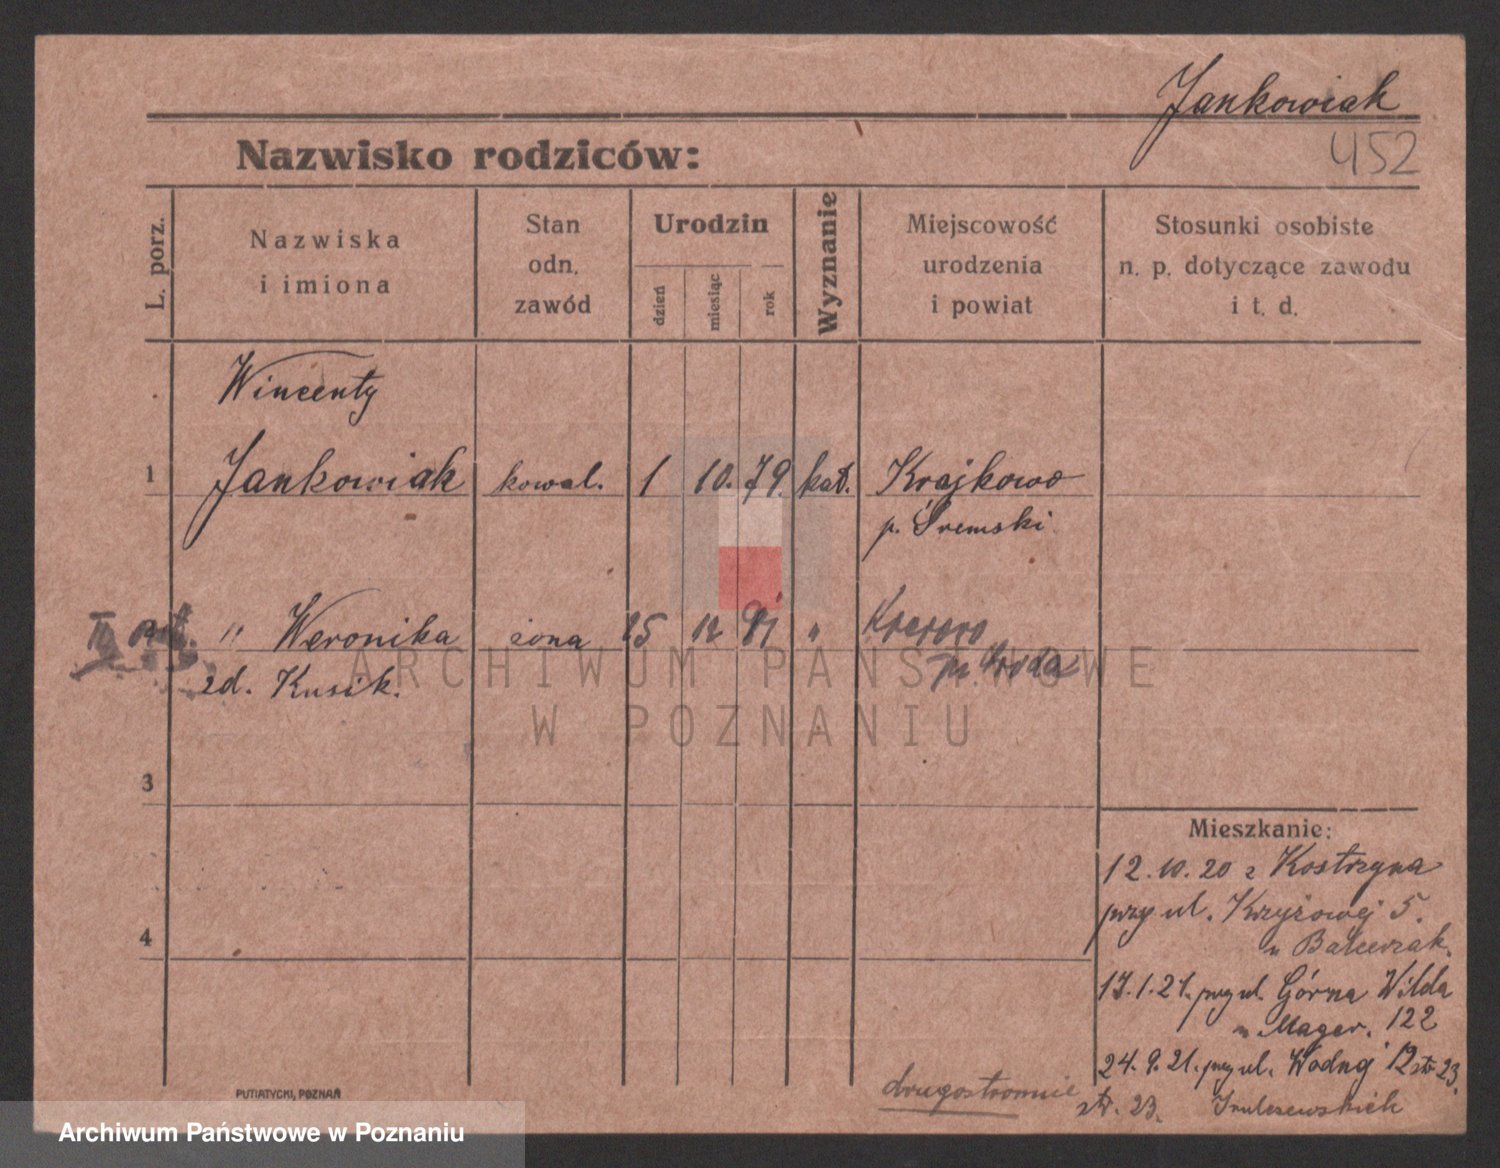 Jankowiak
452
Nazwisko rodziców:
L. porz.
Nazwiska
i imiona
Stan
odn.
zawód
Urodzin
dzień
miesiąc
rok
Wyznanie
Miejscowość
urodzenia
i powiat
Stosunki osobiste
n. p. dotyczące zawodu
i t. d.
Wincenty
1 Jankowiak kowal. 1 10. 79. kat. Krajkowo
p. Śremski.
II " Weronika żona 25 12 91 "
zd. Kusik. Środa
ARCHIWUM PAŃSTWOWE
W POZNANIU
3
4
Mieszkanie:
12.10.20 z Kostrzyna
przy ul. Krzyżowej 5.
u Balcerzak.
17.1.21. przy ul. Górna Wilda
u Mager. 122
24.9.21. przy ul. Wodnej 12 str 23.
drugostronnie
str. 23.
PUTIATYCKI, POZNAŃ
Archiwum Państwowe w Poznaniu